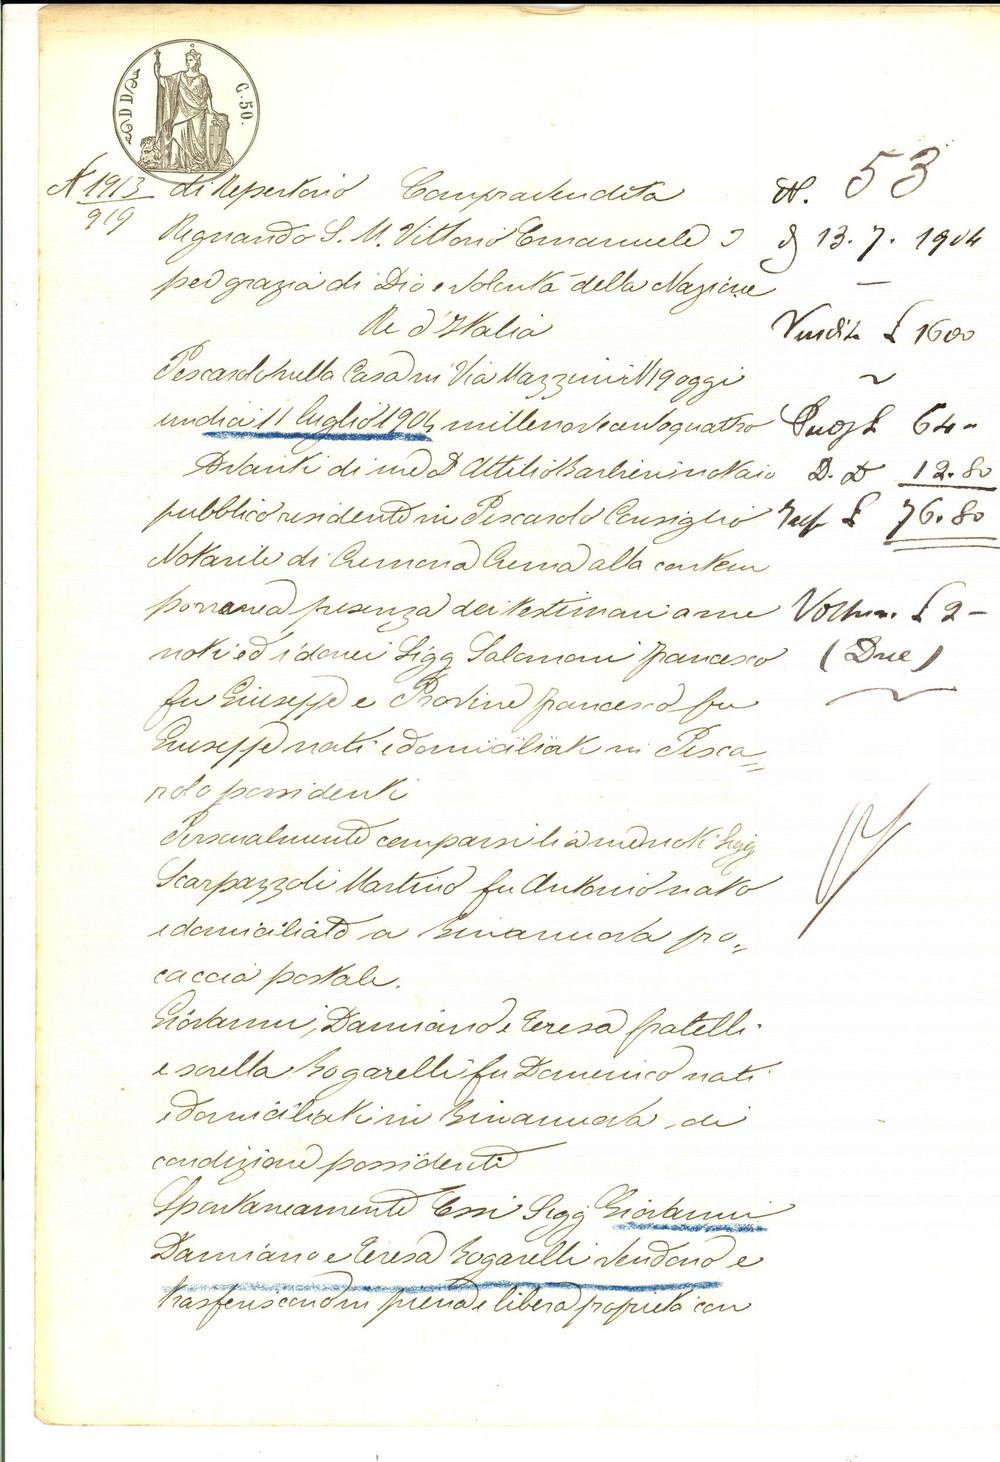 C. 50.
N 1913 di Repertorio Compravendita
919
Regnando S. M. Vittorio Emanuele 3
per grazia di Dio e volontà della Nazione
Re d'Italia
Pescarolo nella Casa in Via Mazzini N 19 oggi
undici 11 luglio 1904 millenovecentoquattro
Avanti di me D Attilio Barbieri notaio
pubblico residente in Pescarolo Consiglio
Notarile di Cremona Crema alla contem
poranea presenza dei testimoni a me
noti ed idonei Sigg Salomoni Francesco
fu Giuseppe e Francesco fu
Giuseppe nati e domiciliati in Pesca=
rolo possidenti
Personalmente comparsi li a me noti Sigg
Scarpazzoli Martino fu Antonio nato
e domiciliato a Binanuova pro=
caccia postale.
Giovanni, Damiano e Teresa fratelli
e sorella Bogarelli fu Domenico nati
e domiciliati in Binanuova di
condizione possidente
Spontaneamente Essi Sigg Giovanni
Damiano e Teresa Bogarelli vendono e
trasferiscono in piena e libera proprietà con
N. 53
13. 7. 1904
Vendita £ 1600
64 =
D. D 12.80
£ 76.80
Voltura £ 2 =
(Due)